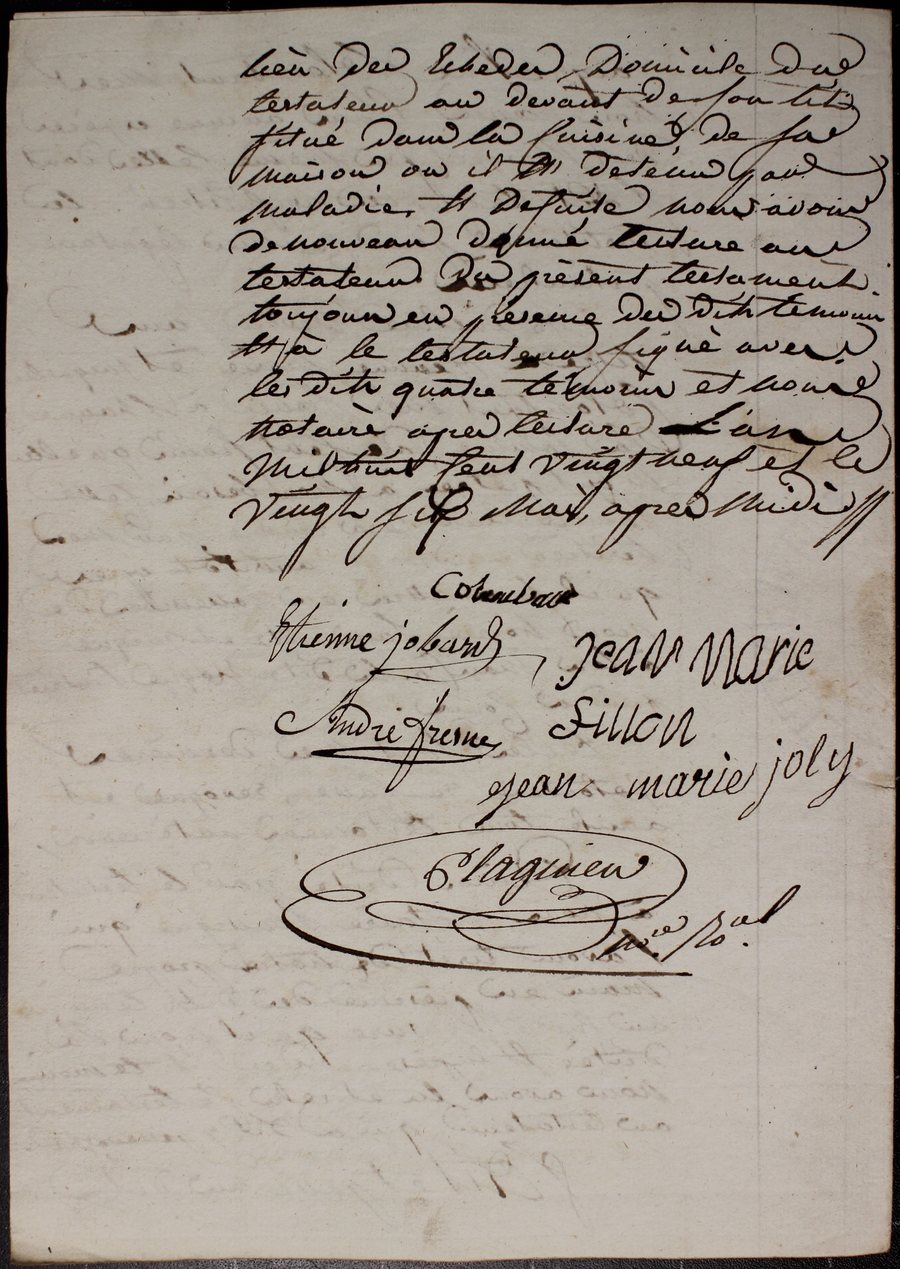 lieu de Domicile du
testateur au devant de son lit
situé dans la Cuisine, de sa
maison ou il est detenu par
maladie, et De suite nous avons
de nouveau donné lecture au
testateur Du présent testament
toujour en présence des dits temoins
et à le testateur signé avec
les dits quatre témoins et nous
notaire apres lecture L'an
Mil huit Cent Vingt neuf et le
Vingt six Mai, apres Midi
Columbat
Etienne jobard
jean Marie
André fresne
Fillon
jean marie joly
Plagnieu
n.re Ro.al